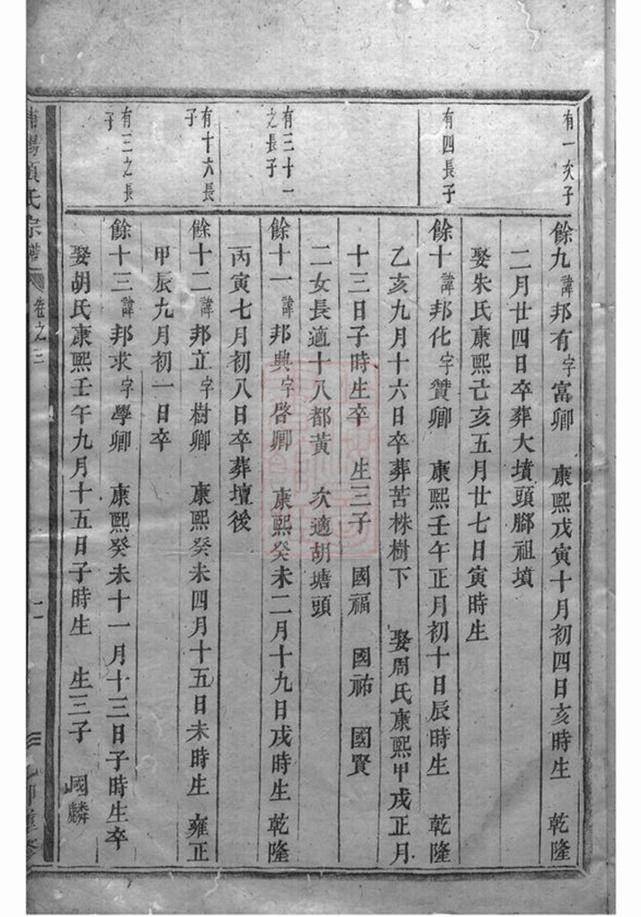 有一次子
餘九諱邦有字富卿 康熙戊寅十月初四日亥時生 乾隆
二月廿四日卒葬大墳頭腳祖墳
娶朱氏康熙己亥五月廿七日寅時生
有四長子
餘十諱邦化字贊卿 康熙壬午正月初十日辰時生 乾隆
乙亥九月十六日卒葬苦株樹下 娶周氏康熙甲戌正月
十三日子時生卒 生三子 國福 國祐 國賢
二女長適十八都黃 次適胡塘頭
有三十一之長子
餘十一諱邦典字啓卿 康熙癸未二月十九日戌時生 乾隆
丙寅七月初八日卒葬壇後
有十六長子
餘十二諱邦立字樹卿 康熙癸未四月十五日未時生 雍正
甲辰九月初一日卒
有三之長子
餘十三諱邦求字學卿 康熙癸未十一月十三日子時生卒
娶胡氏康熙壬午九月十五日子時生 生三子 國麟
氏宗譜 卷之三